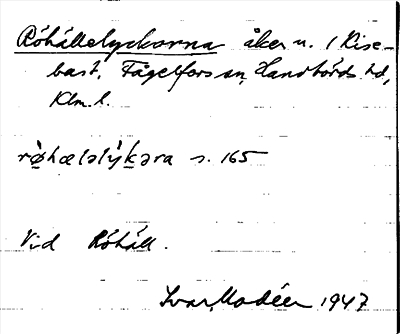 Röhällelyckorna åker u. / Rise-
bast, Fågelfors sn, Handbörds hd,
Klm. l.
rø̀hælalýkəra s. 165
Vid Röhäll.
Ivar Modéer 1947